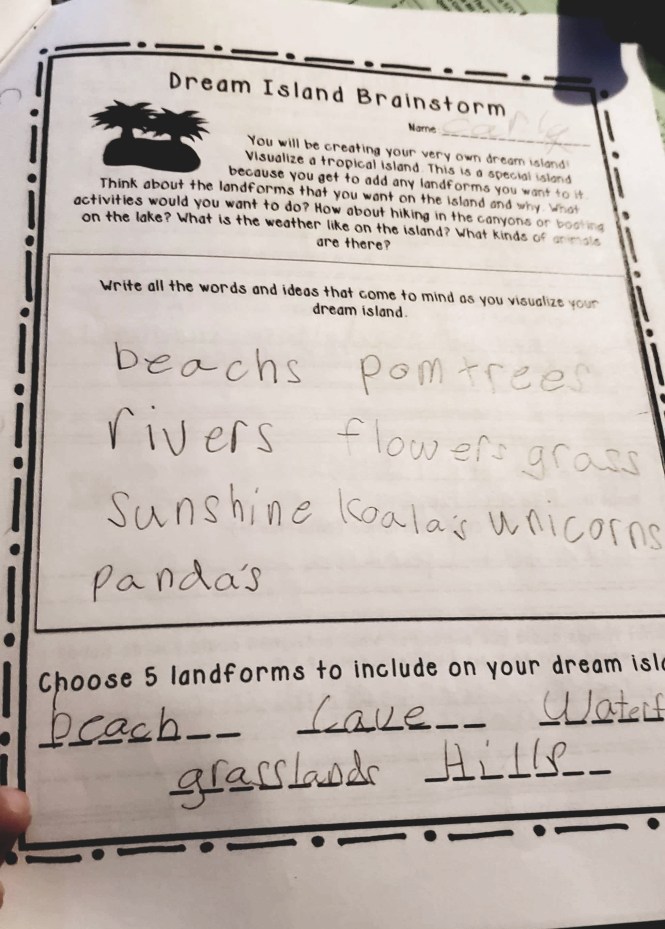 Dream Island Brainstorm
Name
You will be creating your very own dream island!
Visualize a tropical island. This is a special island
because you get to add any landforms you want to it.
Think about the landforms that you want on the island and why. What
activities would you want to do? How about hiking in the canyons or boating
on the lake? What is the weather like on the island? What kinds of animals
are there?
Write all the words and ideas that come to mind as you visualize your
dream island.
beachs pom trees
rivers flowers grass
sunshine koala's unicorns
panda's
Choose 5 landforms to include on your dream isla
beach Cave Waterf
grasslands Hills